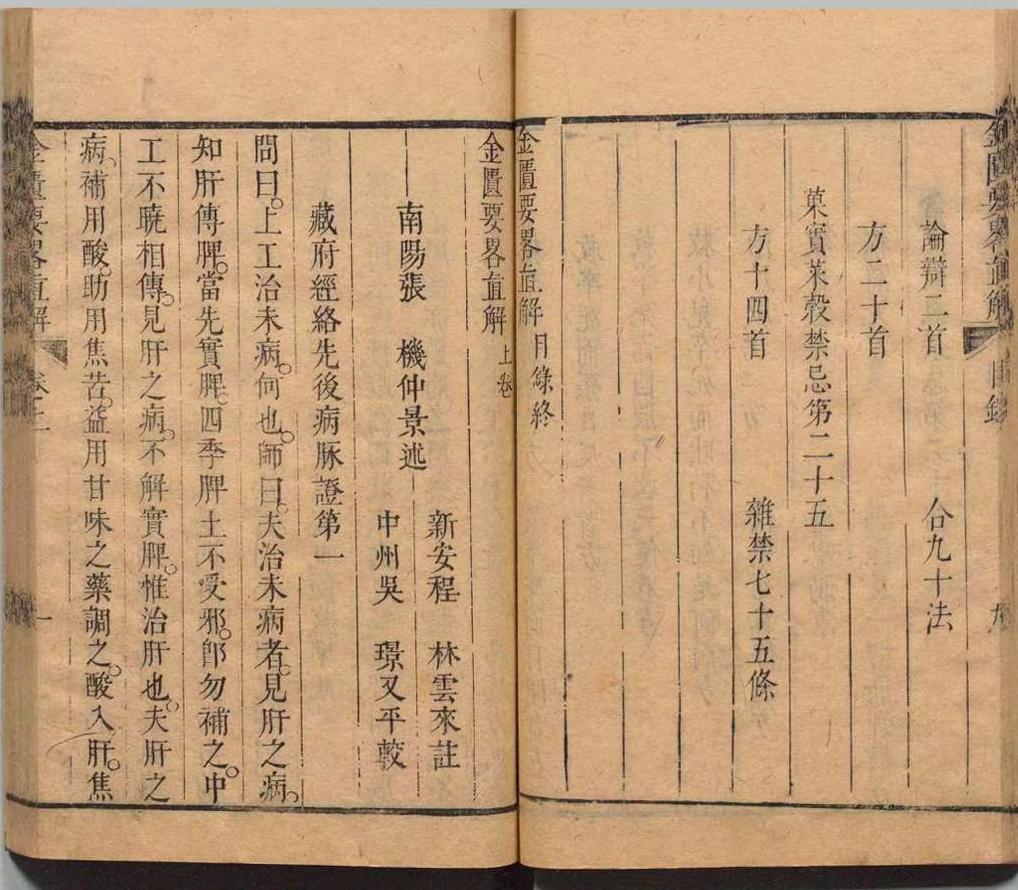 金匱要畧直解 目錄 九
論辯二首 合九十法
方二十首
菓實菜穀禁忌第二十五
方十四首 雜禁七十五條
金匱要畧直解 目錄終
金匱要畧直解 上卷
新安程 林雲來註
南陽張 機仲景述
中州吳 璟又平較
藏府經絡先後病脉證第一
問曰。上工治未病。何也。師曰。夫治未病者。見肝之病。
知肝傳脾。當先實脾。四季脾土不受邪。卽勿補之。中
工不曉相傳。見肝之病。不解實脾。惟治肝也。夫肝之
病。補用酸。助用焦苦。益用甘味之藥調之。酸入肝。焦
金匱要畧直解 卷上 一